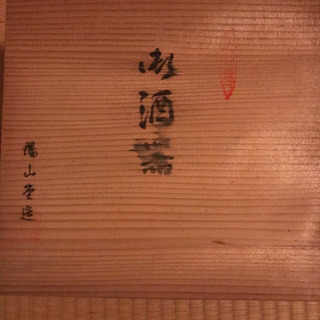 御酒器
陽山堂造